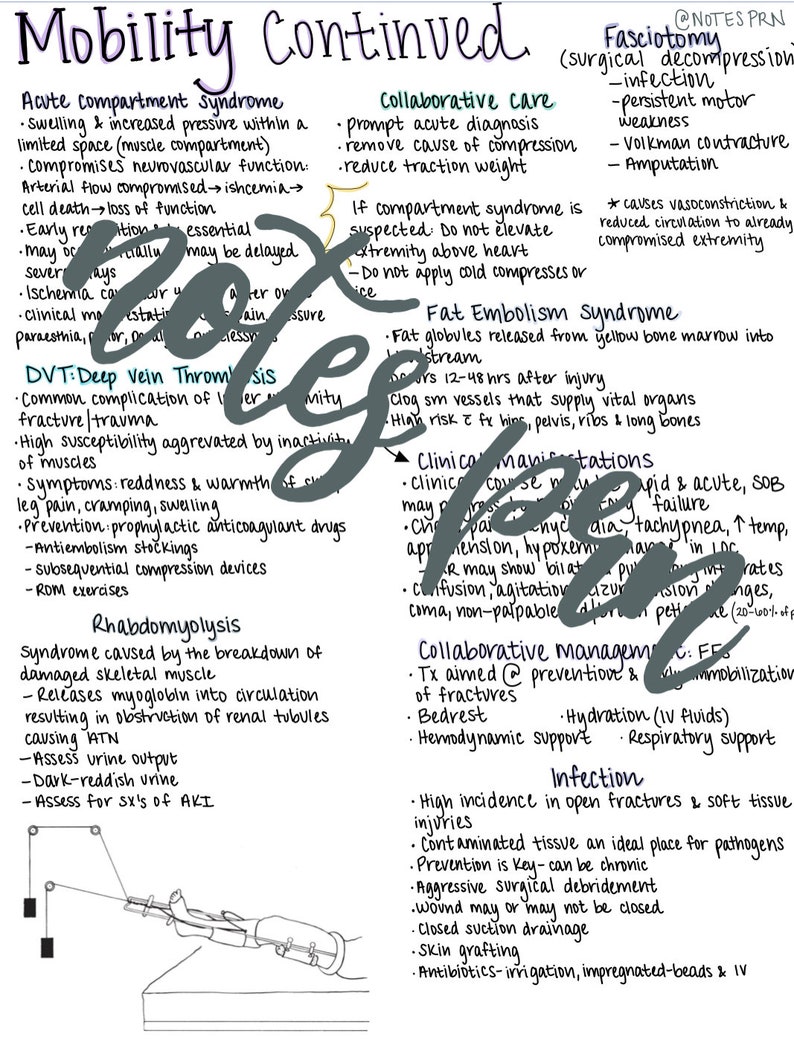 Mobility Continued
@NOTESPRN
Acute Compartment Syndrome
• Swelling & increased pressure within a
limited space (muscle compartment)
• Compromises neurovascular function:
Arterial flow compromised → ishcemia →
cell death → loss of function
• Early is essential
• May may be delayed
days
• Ischemia
• Clinical
paraesthia,
DVT: Deep Vein Thrombosis
• Common complication of lower extremity
fracture/trauma
• High susceptibility aggrevated by inactivity
of muscles
• Symptoms: reddness & warmth of
leg pain, cramping, swelling
• Prevention: prophylactic anticoagulant drugs
– Antiembolism stockings
– subsequential compression devices
– ROM exercises
Rhabdomyolysis
Syndrome caused by the breakdown of
damaged skeletal muscle
– Releases myoglobin into circulation
resulting in obstruction of renal tubules
causing ATN
– Assess urine output
– Dark-reddish urine
– Assess for sx's of AKI
Collaborative Care
• Prompt acute diagnosis
• remove cause of compression
• reduce traction weight
If compartment syndrome is
suspected: Do not elevate
extremity above heart
– Do not apply cold compresses or
ice
Fasciotomy
(surgical decompression)
– infection
– persistent motor
weakness
– Volkman contracture
– Amputation
* causes vasoconstriction &
reduced circulation to already
compromised extremity
Fat Embolism Syndrome
• Fat globules released from yellow bone marrow into
bloodstream
• Occurs 12-48 hrs after injury
• Clog sm vessels that supply vital organs
• High risk c̄ fx hips, pelvis, ribs & long bones
Clinical Manifestations
• Clinical course may be rapid & acute, SOB
may failure
• tachypnea, ↑ temp,
hypoxemia, in LOC
may show
• Confusion, agitation,
coma, non-palpable
Collaborative Management: FES
• Tx aimed @ prevention & immobilization
of fractures
• Bedrest • Hydration (IV fluids)
• Hemodynamic support • Respiratory support
Infection
• High incidence in open fractures & soft tissue
injuries
• Contaminated tissue an ideal place for pathogens
• Prevention is key – can be chronic
• Aggressive surgical debridement
• Wound may or may not be closed
• Closed suction drainage
• Skin grafting
• Antibiotics – irrigation, impregnated-beads & IV
notes
prn